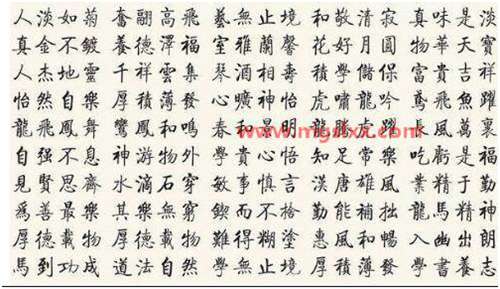 人淡如菊 奮翮高飛 藝無止境 和敬清寂 真味是淡
真金不鍍 養德澤福 室雅蘭馨 花好月圓 物華天寶
人杰地靈 千祥雲集 琴酒相壽 學儲 富貴吉祥
怡然自樂 厚積薄發 心曠神怡 虎嘯龍吟 鳶飛魚躍
龍飛鳳舞 鸞鳳和鳴 春和景明 龍騰虎躍 長風萬里
www.mgdxx.com
自强不息 神游物外 學貴心悟 知足常樂 吃虧是福
見賢思齊 水滴石穿 敏事慎言 漢唐雄風 業精于勤
爲善最樂 其樂無窮 鍥而不捨 勤能補拙 龍馬精神
厚德載物 厚德載物 難得糊塗 惠風和暢 入幽出朗
馬到功成 道法自然 學無止境 厚積薄發 學書養志